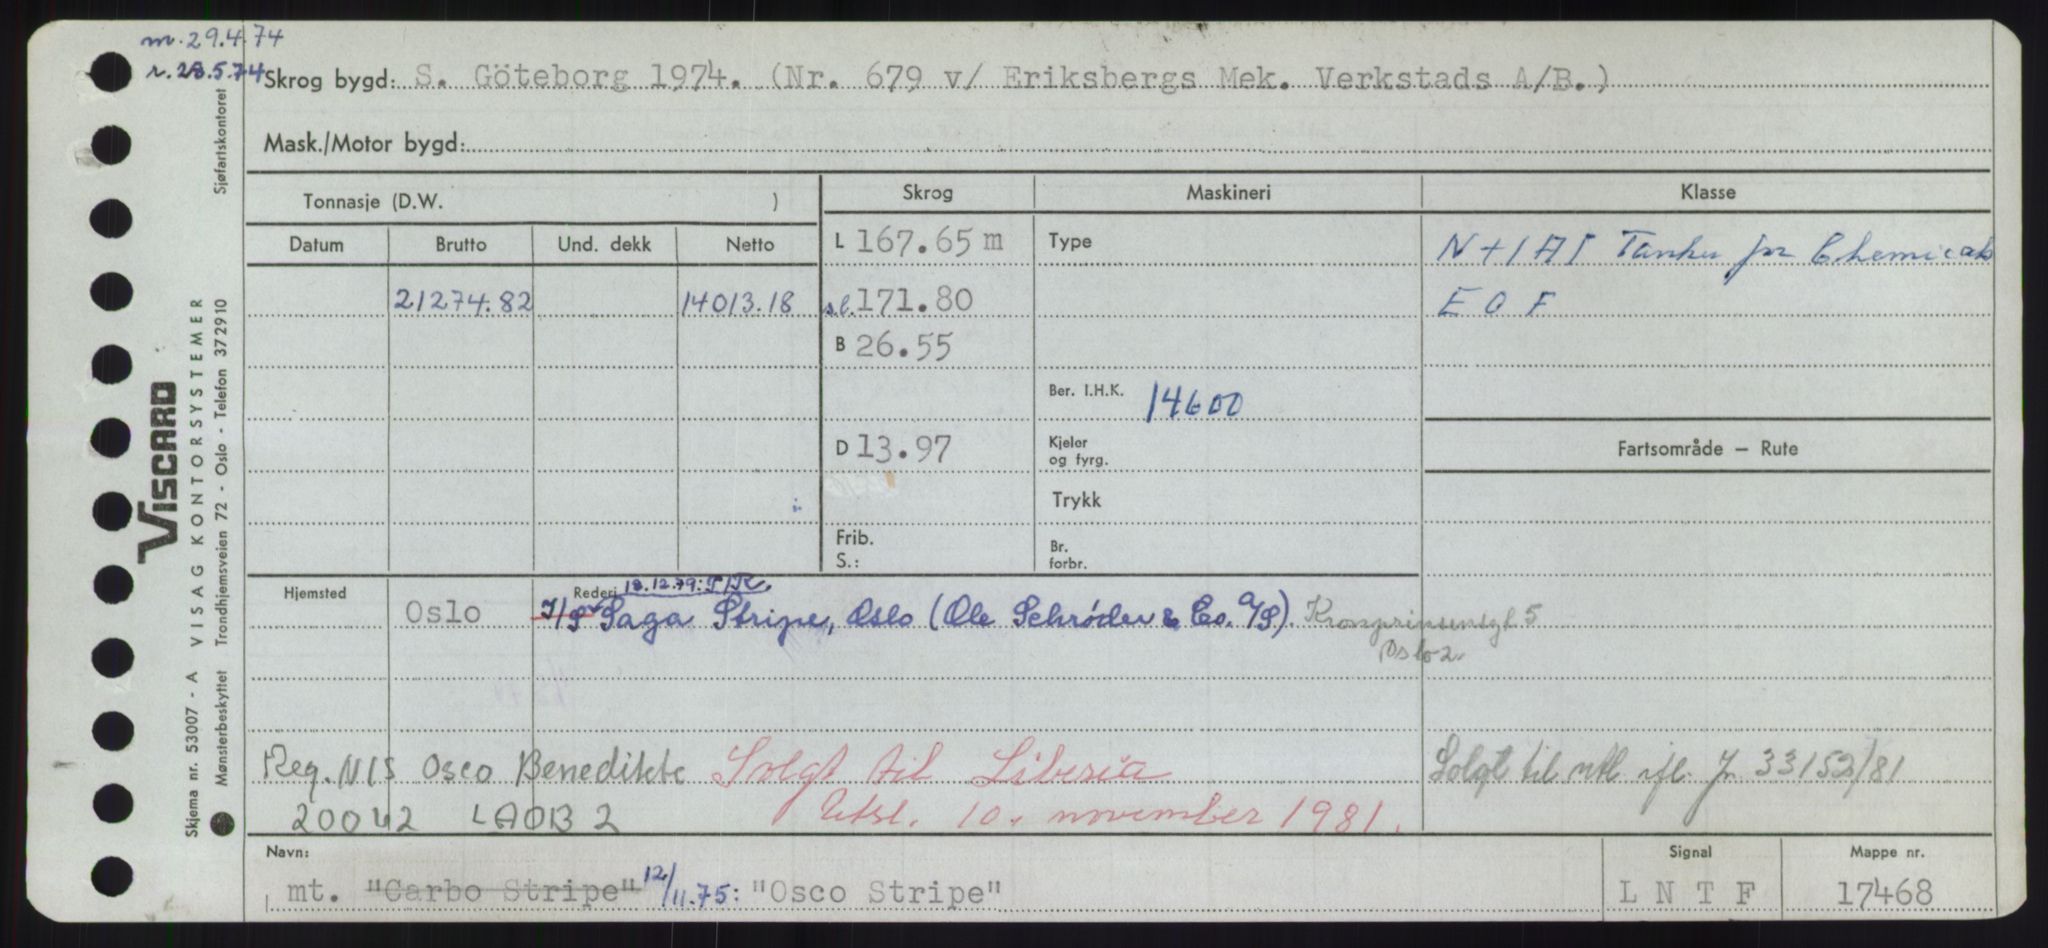 m. 29.4.74
r. 28.5.74
Skrog bygd: S. Göteborg 1974. (Nr. 679 v/ Eriksbergs Mek. Verkstads A/B.)
Mask./Motor bygd:
Tonnasje (D.W. )
Skrog Maskineri Klasse
Datum Brutto Und. dekk Netto
L 167.65 m Type N+1A1 Tanker for Chemicals
21274.82 14013.18 s.l. 171.80 E O F
B 26.55
Ber. I.H.K. 14600
D 13.97 Kjeler og fyrg. Fartsområde — Rute
Trykk
Frib.
S.: Br. forbr.
Hjemsted Rederi 18.12.79: P/R
Oslo I/S Saga Stripe, Oslo (Ole Schrøder & Co. A/S). Kronprinsensgt. 5
Oslo 2.
Reg. NIS Osco Benedikte Solgt til Liberia Solgt til utl. ifl. J. 33153/81
20042 LAOB 2 Utsl. 10. november 1981.
Navn: Signal Mappe nr.
mt. "Carbo Stripe" 12/11.75: "Osco Stripe" L N T F 17468
Skjema nr. 53007 - A VISAG KONTORSYSTEMER
Mønsterbeskyttet Trondhjemsveien 72 - Oslo - Telefon 372910 Sjøfartskontoret
VISCARD